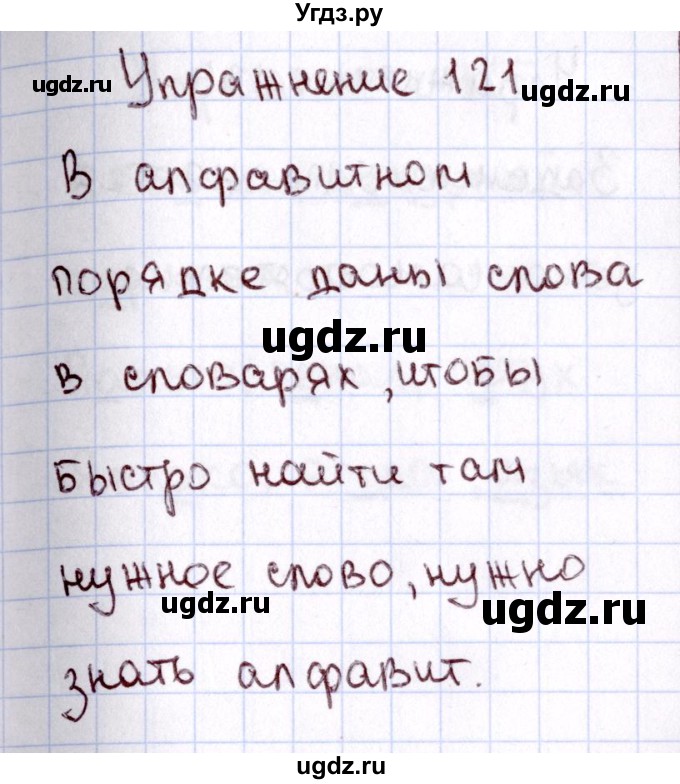 Угдз.ру
ugdz.ru
Упражнение 121
ugdz.ru
В алфавитном
порядке даны слова
ugdz.ru
в словарях, чтобы
быстро найти там
нужное слово, нужно
ugdz.ru
ugdz.ru
знать алфавит.
ugdz.ru